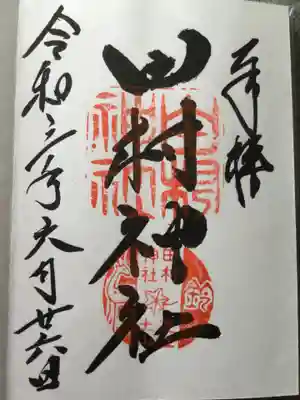 奉拝
田村神社
令和三年六月廿六日